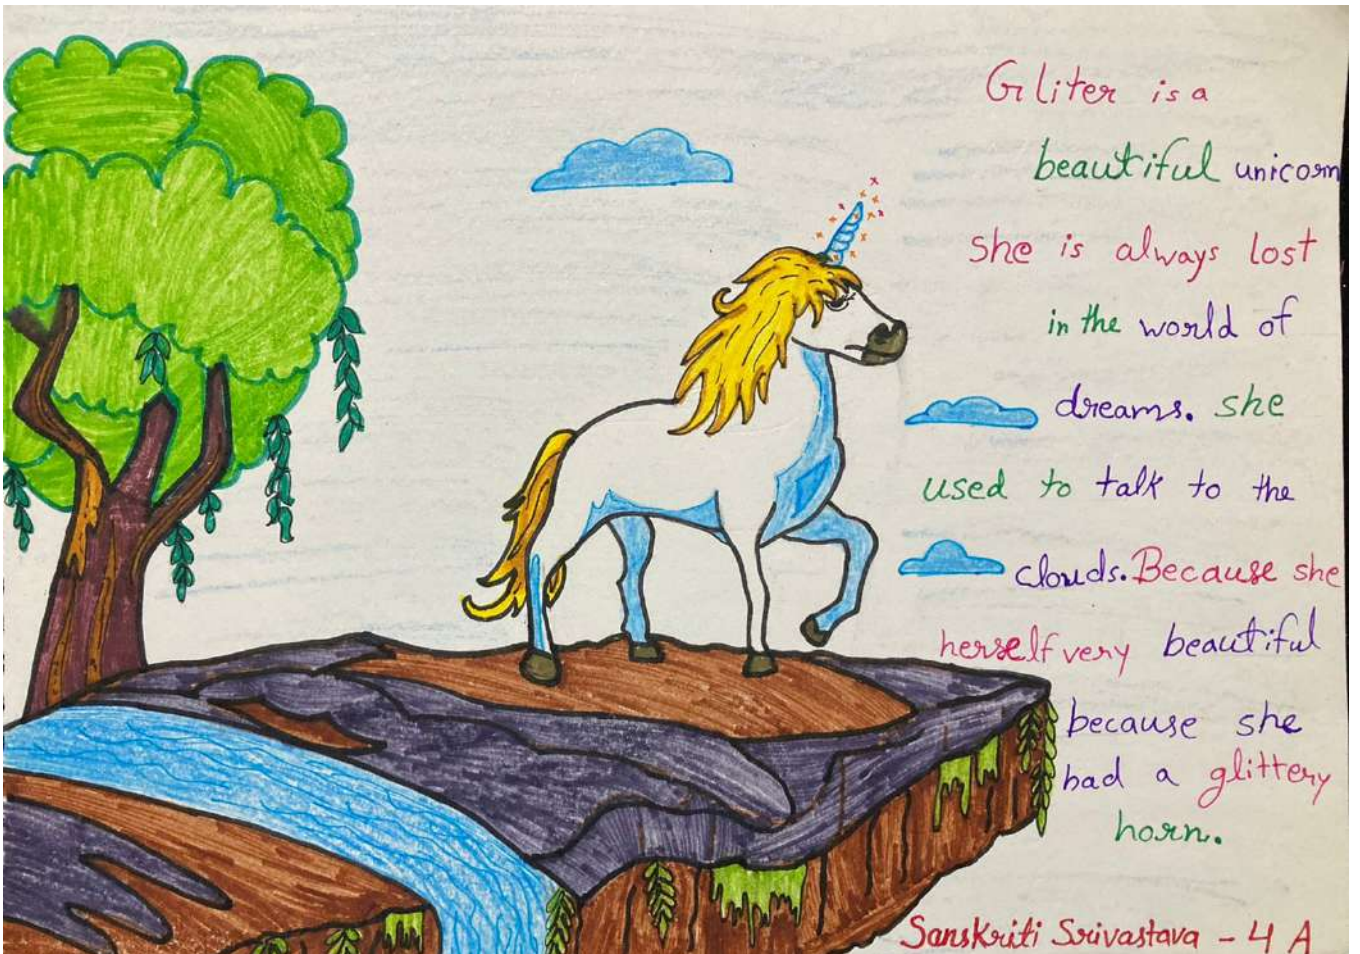 Gliter is a
beautiful unicorn
she is always lost
in the world of
dreams. she
used to talk to the
clouds. Because she
herself very beautiful
because she
had a glittery
horn.
Sanskriti Srivastava - 4 A